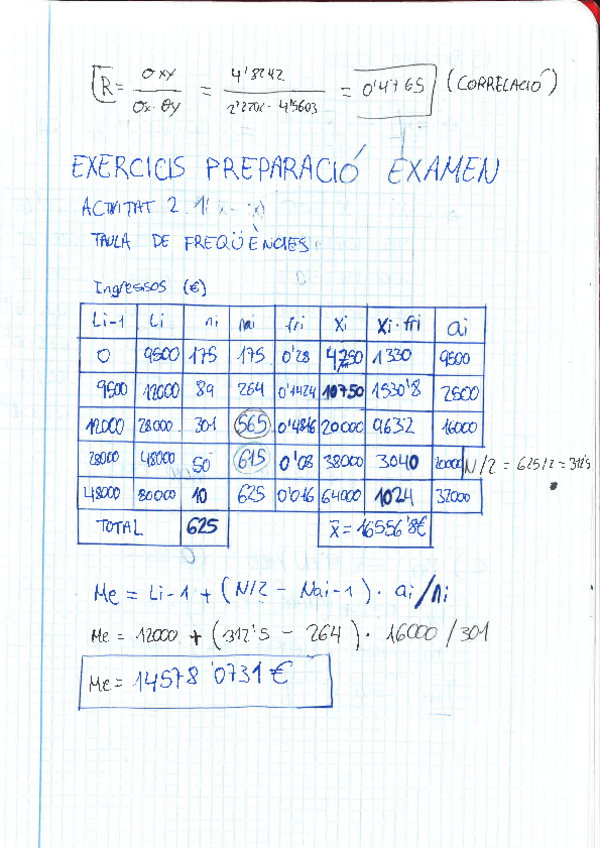 R = σxy / σx · σy = 4'8242 / 2'2206 · 4'5603 = 0'4765 (CORRELACIÓ)
EXERCICIS PREPARACIÓ EXAMEN
ACTIVITAT 2.1
TAULA DE FREQÜÈNCIES
Ingressos (€)
Li-1 Li ni Nai fri Xi Xi·fri ai
0 9500 175 175 0'28 4750 1330 9500
9500 12000 89 264 0'1424 10750 1530'8 2500
12000 28000 301 565 0'4816 20000 9632 16000
28000 48000 50 615 0'08 38000 3040 20000 N/2 = 625/2 = 312'5
48000 80000 10 625 0'016 64000 1024 32000
TOTAL 625 x̄ = 16556'8€
Me = Li-1 + (N/2 - Nai-1) · ai/ni
Me = 12000 + (312'5 - 264) · 16000/301
Me = 14578'0731 €